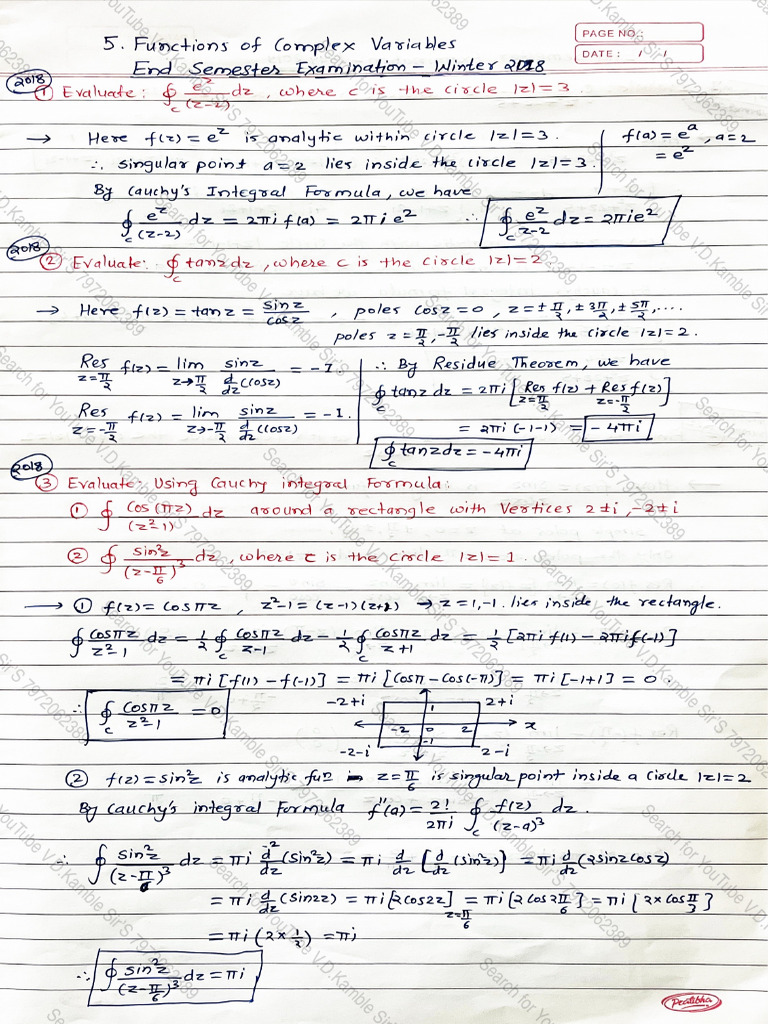 PAGE NO.:
DATE: / /
5. Functions of Complex Variables
End Semester Examination – Winter 2018
2018
① Evaluate: ∮_c e^z/(z-2) dz, where c is the circle |z|=3.
→ Here f(z) = e^z is analytic within circle |z|=3. | f(a) = e^a, a=2
∴ singular point a=2 lies inside the circle |z|=3. | = e^2
By Cauchy's Integral Formula, we have
∮_c e^z/(z-2) dz = 2πi f(a) = 2πi e^2 ∴ ∮_c e^z/z-2 dz = 2πie^2
2018
② Evaluate: ∮_c tanz dz, where c is the circle |z|=2
→ Here f(z) = tanz = sinz/cosz, poles cosz=0, z=±π/2, ±3π/2, ±5π/2, ....
poles z=π/2, -π/2 lies inside the circle |z|=2.
Res_{z=π/2} f(z) = lim_{z→π/2} sinz/(d/dz(cosz)) = -1 | ∴ By Residue Theorem, we have
∮_c tanz dz = 2πi [Res_{z=π/2} f(z) + Res_{z=-π/2} f(z)]
Res_{z=-π/2} f(z) = lim_{z→-π/2} sinz/(d/dz(cosz)) = -1. | = 2πi(-1-1) = -4πi
∮_c tanz dz = -4πi
2018
③ Evaluate Using Cauchy integral Formula:
① ∮ cos(πz)/(z²-1) dz around a rectangle with Vertices 2±i, -2±i
② ∮ sin²z/(z-π/6)³ dz, where c is the circle |z|=1.
→ ① f(z) = cosπz, z²-1=(z-1)(z+1) → z=1,-1. lies inside the rectangle.
∮ cosπz/z²-1 dz = 1/2 ∮_c cosπz/z-1 dz - 1/2 ∮_c cosπz/z+1 dz = 1/2 [2πi f(1) - 2πi f(-1)]
= πi [f(1) - f(-1)] = πi [cosπ - cos(-π)] = πi [-1+1] = 0.
∴ ∮_c cosπz/z²-1 = 0
-2+i 1 2+i
-2 0 2 x
-2-i -1 2-i
② f(z) = sin²z is analytic fun z=π/6 is singular point inside a circle |z|=2
By Cauchy's integral Formula f''(a) = 2!/2πi ∮_c f(z)/(z-a)³ dz.
∴ ∮ sin²z/(z-π/6)³ dz = πi d²/dz (sin²z) = πi d/dz [d/dz (sin²z)] = πi d/dz (2sinz cosz)
= πi d/dz (sin2z) = πi [2cos2z]_{z=π/6} = πi [2cos2π/6] = πi [2×cosπ/3]
= πi (2×1/2) = πi
∴ ∮ sin²z/(z-π/6)³ dz = πi
Pratibha
Search for YouTube V.D.Kamble Sir'S 7972062389